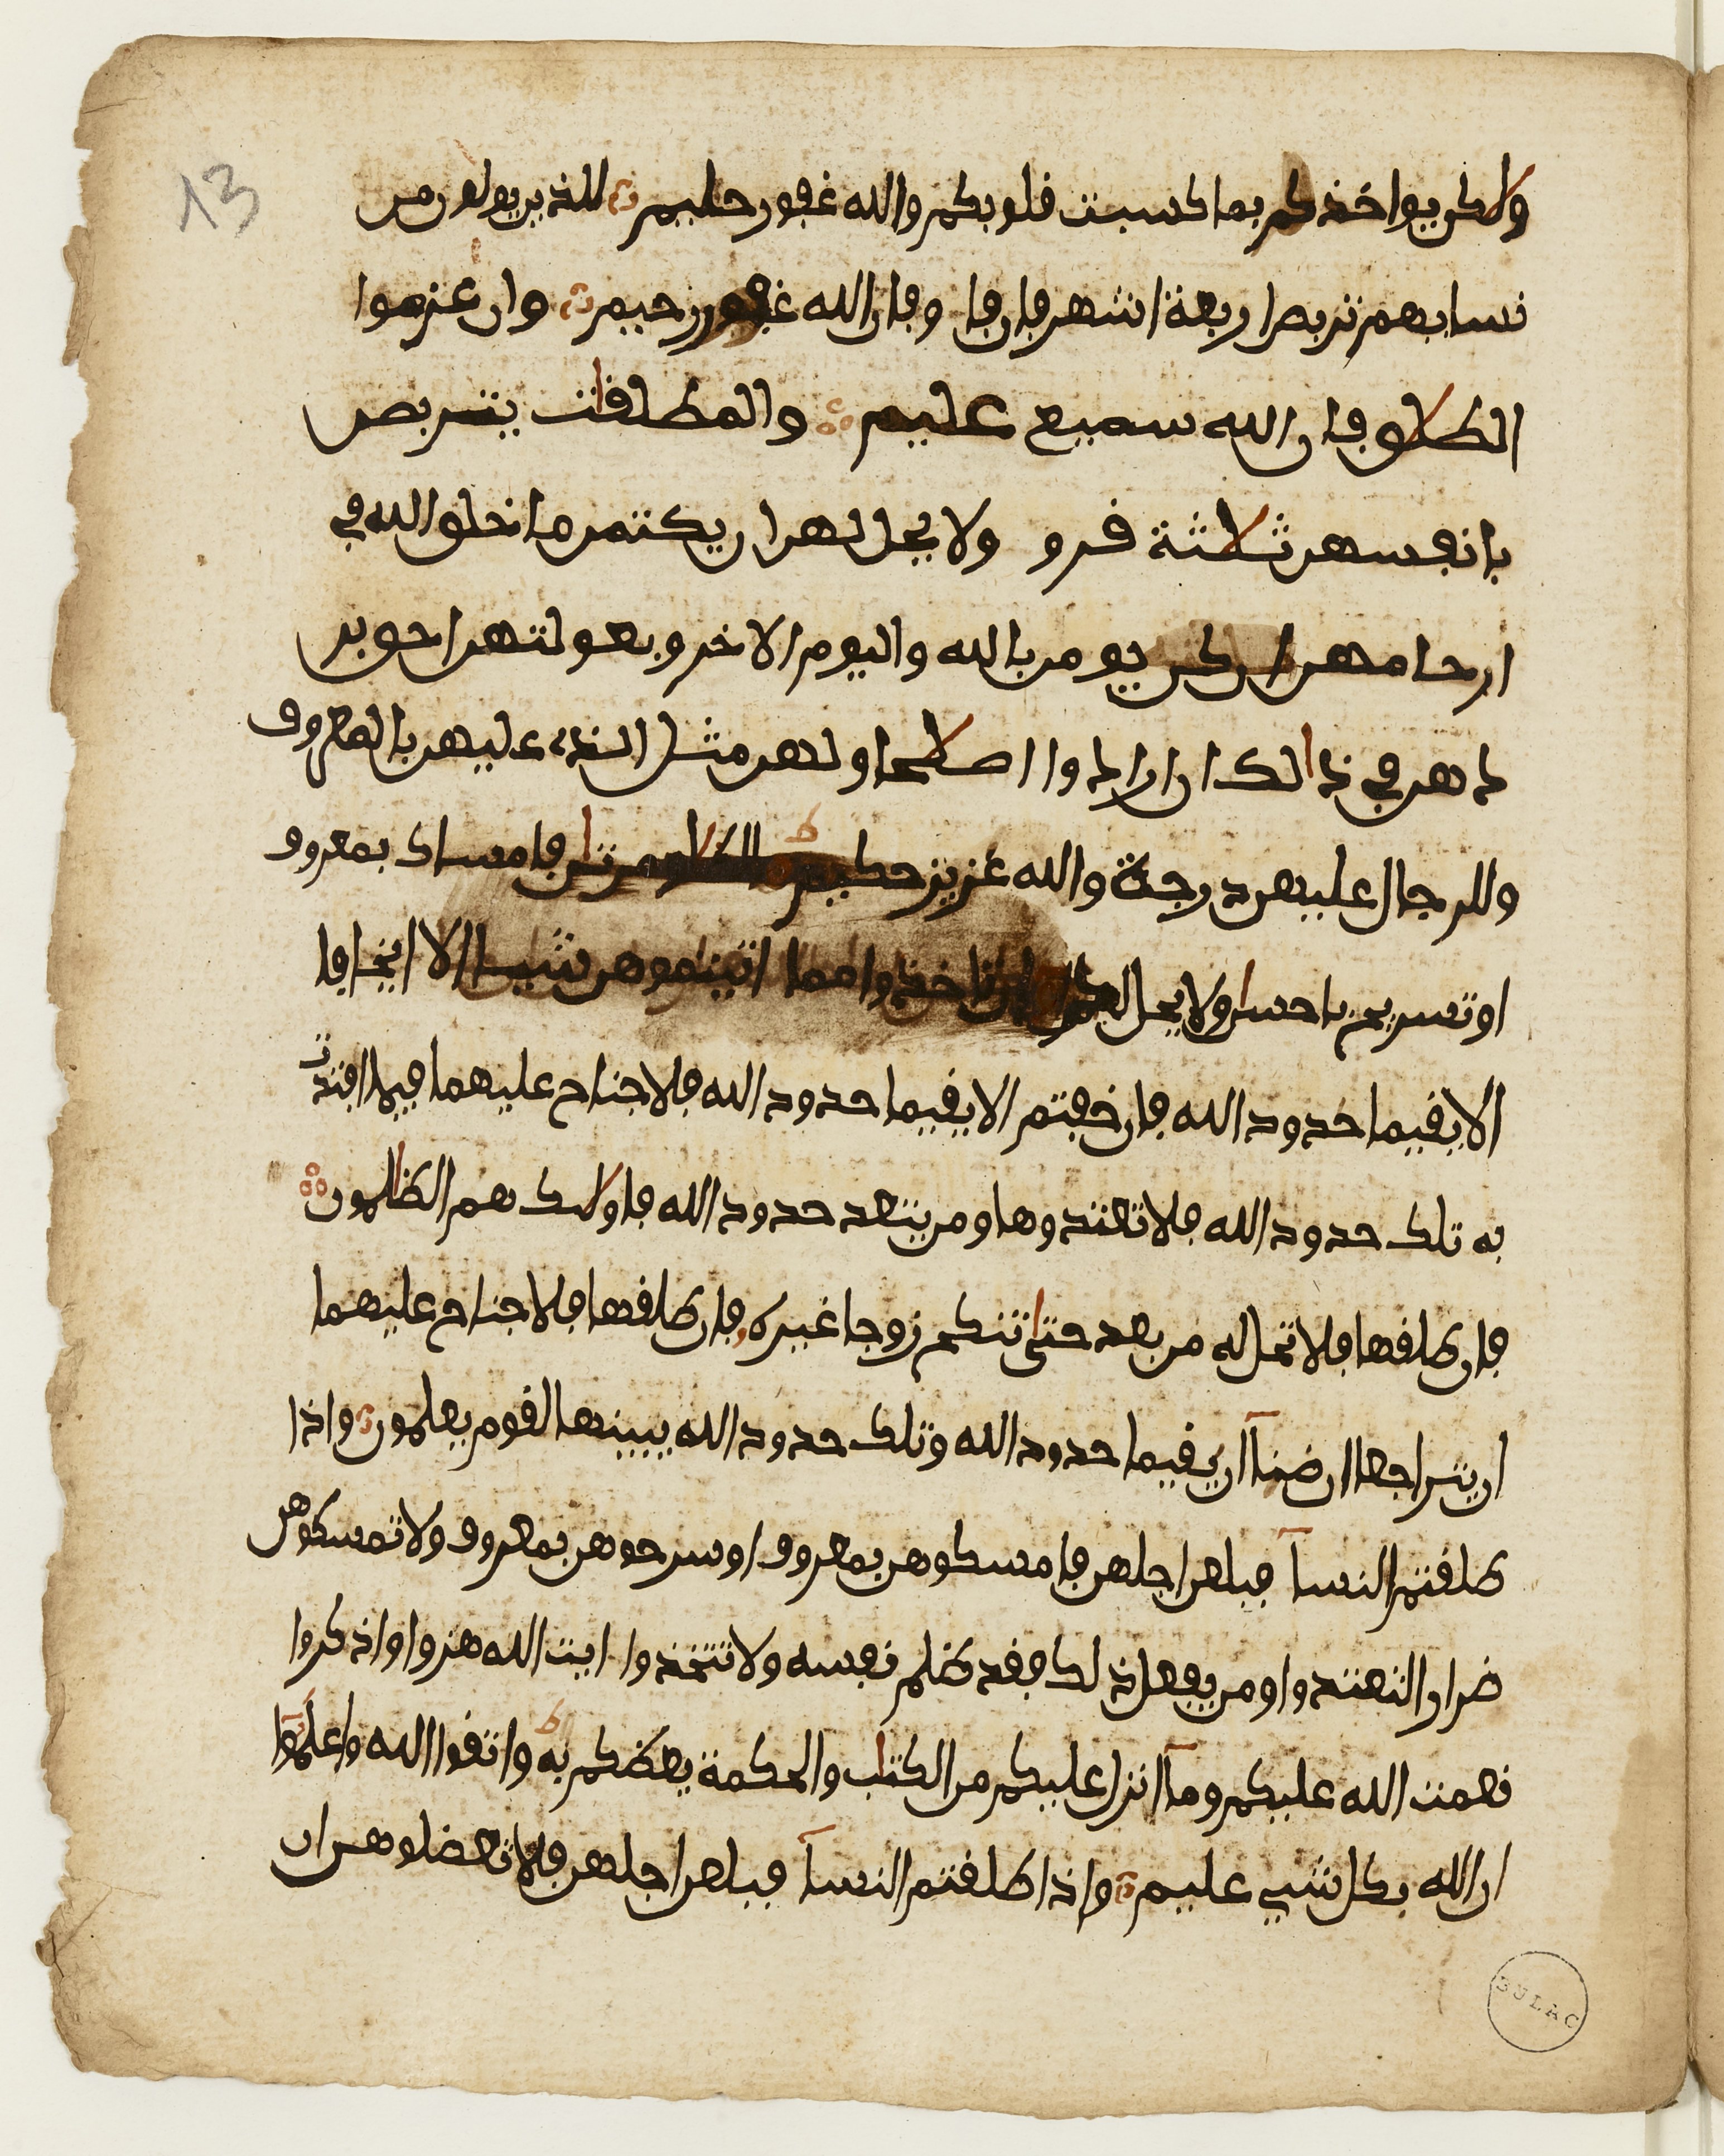 13
ولاكن يواخذكم بما كسبت قلوبكم والله غفور حليم للذين يولون من
نسايهم تربص اربعة اشهر فان فا وفان الله غفور رحيم وان عزموا
الطلاق فان الله سميع عليم والمطلقات يتربص
بانفسهن ثلاثة قرو ولا يحل لهن ان يكتمن ما خلق الله في
ارحامهن ان كن يومن بالله واليوم الاخر وبعولتهن احق بر
دهن في ذالك ان ارادوا اصلاحا ولهن مثل الذي عليهن بالمعروف
وللرجال عليهن درجة والله عزيز حكيم فامساك بمعروف
او تسريح باحسان ولا يحل لكم ان تاخذوا مما اتيتموهن شيا الا ان يخافا
الا يقيما حدود الله فان خفتم الا يقيما حدود الله فلا جناح عليهما فيما افتدت
به تلك حدود الله فلا تعتدوها ومن يتعد حدود الله فاولايك هم الظالمون
فان طلقها فلا تحل له من بعد حتى تنكح زوجا غيره فان طلقها فلا جناح عليهما
ان يتراجعا ان ضنآ ان يقيما حدود الله وتلك حدود الله يبينها لقوم يعلمون واذا
طلقتم النسآ فبلغن اجلهن فامسكوهن بمعروف او سرحوهن بمعروف ولا تمسكوهن
ضرارا لتعتدوا ومن يفعل ذلك فقد ظلم نفسه ولا تتخذوا ايت الله هزوا واذكروا
نعمت الله عليكم ومآ انزل عليكم من الكتاب والحكمة يعظكم به واتقوا الله واعلموا
ان الله بكل شي عليم واذا طلقتم النسآ فبلغن اجلهن فلا تعضلوهن ان
BULAC